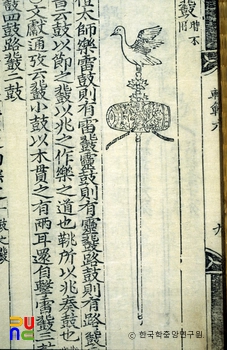 鼗
太師樂雷鼓則有雷鼗靈鼓則有靈鼗路鼓則有路鼗
云鼓以節之鼗以兆之作樂之道也鞉所以兆奏鼓也
文獻通攷云鼗小鼓以木貫之有兩耳還自擊雷鼓
鼓四鼓路鼗二鼓
© 한국학중앙연구원